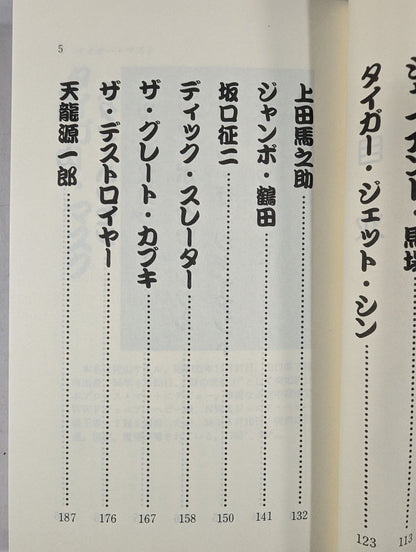 ジャイアント・馬場 113
タイガー・ジェット・シン 123
5
上田馬之助 132
ジャンボ・鶴田 141
坂口征二 150
ディック・スレーター 158
ザ・グレート・カブキ 167
ザ・デストロイヤー 176
天龍源一郎 187